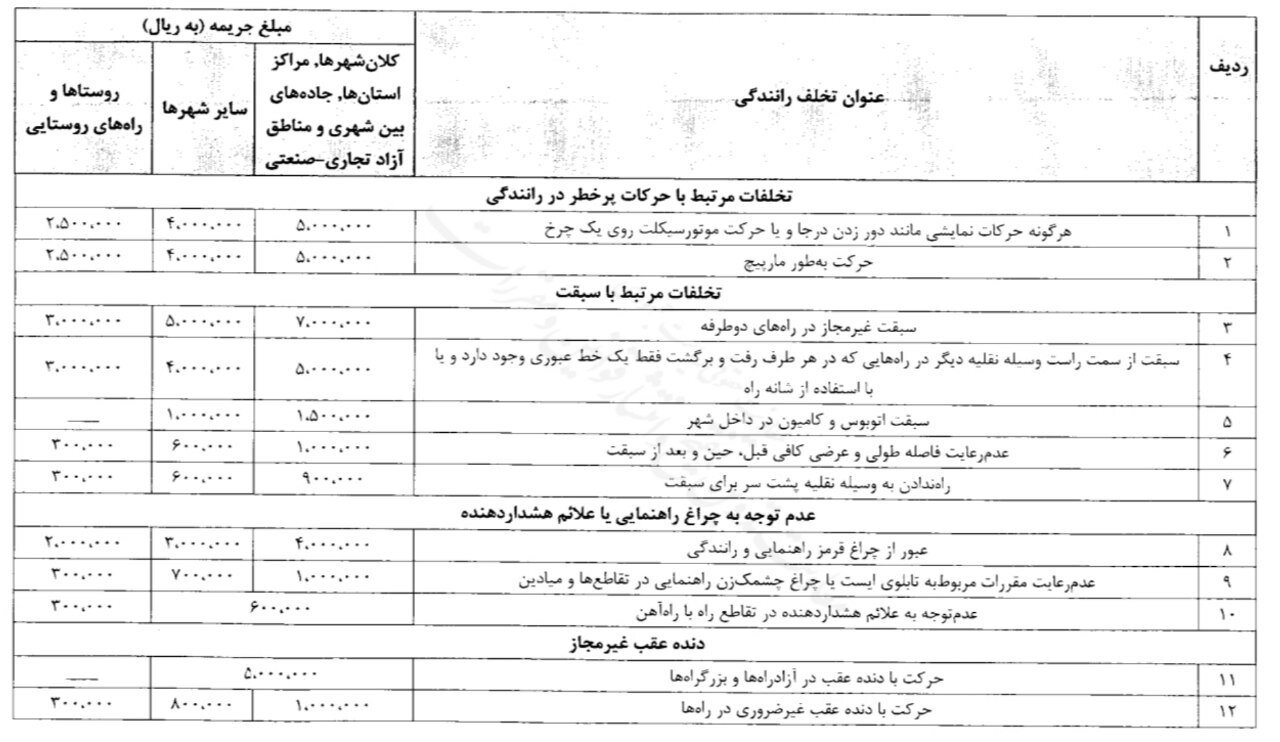 ردیف
عنوان تخلف رانندگی
مبلغ جریمه (به ریال)
کلان‌شهرها، مراکز
استان‌ها، جاده‌های
بین شهری و مناطق
آزاد تجاری-صنعتی
سایر شهرها
روستاها و
راه‌های روستایی
تخلفات مرتبط با حرکات پرخطر در رانندگی
۱ هرگونه حرکات نمایشی مانند دور زدن درجا و یا حرکت موتورسیکلت روی یک چرخ ۵،۰۰۰،۰۰۰ ۴،۰۰۰،۰۰۰ ۲،۵۰۰،۰۰۰
۲ حرکت به‌طور مارپیچ ۵،۰۰۰،۰۰۰ ۴،۰۰۰،۰۰۰ ۲،۵۰۰،۰۰۰
تخلفات مرتبط با سبقت
۳ سبقت غیرمجاز در راه‌های دوطرفه ۷،۰۰۰،۰۰۰ ۵،۰۰۰،۰۰۰ ۳،۰۰۰،۰۰۰
۴ سبقت از سمت راست وسیله نقلیه دیگر در راه‌هایی که در هر طرف رفت و برگشت فقط یک خط عبوری وجود دارد و یا
با استفاده از شانه راه ۵،۰۰۰،۰۰۰ ۴،۰۰۰،۰۰۰ ۳،۰۰۰،۰۰۰
۵ سبقت اتوبوس و کامیون در داخل شهر ۱،۵۰۰،۰۰۰ ۱،۰۰۰،۰۰۰ ——
۶ عدم‌رعایت فاصله طولی و عرضی کافی قبل، حین و بعد از سبقت ۱،۰۰۰،۰۰۰ ۶۰۰،۰۰۰ ۳۰۰،۰۰۰
۷ راه‌ندادن به وسیله نقلیه پشت سر برای سبقت ۹۰۰،۰۰۰ ۶۰۰،۰۰۰ ۳۰۰،۰۰۰
عدم توجه به چراغ راهنمایی یا علائم هشداردهنده
۸ عبور از چراغ قرمز راهنمایی و رانندگی ۴،۰۰۰،۰۰۰ ۳،۰۰۰،۰۰۰ ۲،۰۰۰،۰۰۰
۹ عدم‌رعایت مقررات مربوط‌به تابلوی ایست یا چراغ چشمک‌زن راهنمایی در تقاطع‌ها و میادین ۱،۰۰۰،۰۰۰ ۷۰۰،۰۰۰ ۳۰۰،۰۰۰
۱۰ عدم‌توجه به علائم هشداردهنده در تقاطع راه با راه‌آهن ۶۰۰،۰۰۰ ۳۰۰،۰۰۰
دنده عقب غیرمجاز
۱۱ حرکت با دنده عقب در آزادراه‌ها و بزرگراه‌ها ۵،۰۰۰،۰۰۰ ——
۱۲ حرکت با دنده عقب غیرضروری در راه‌ها ۱،۰۰۰،۰۰۰ ۸۰۰،۰۰۰ ۳۰۰،۰۰۰